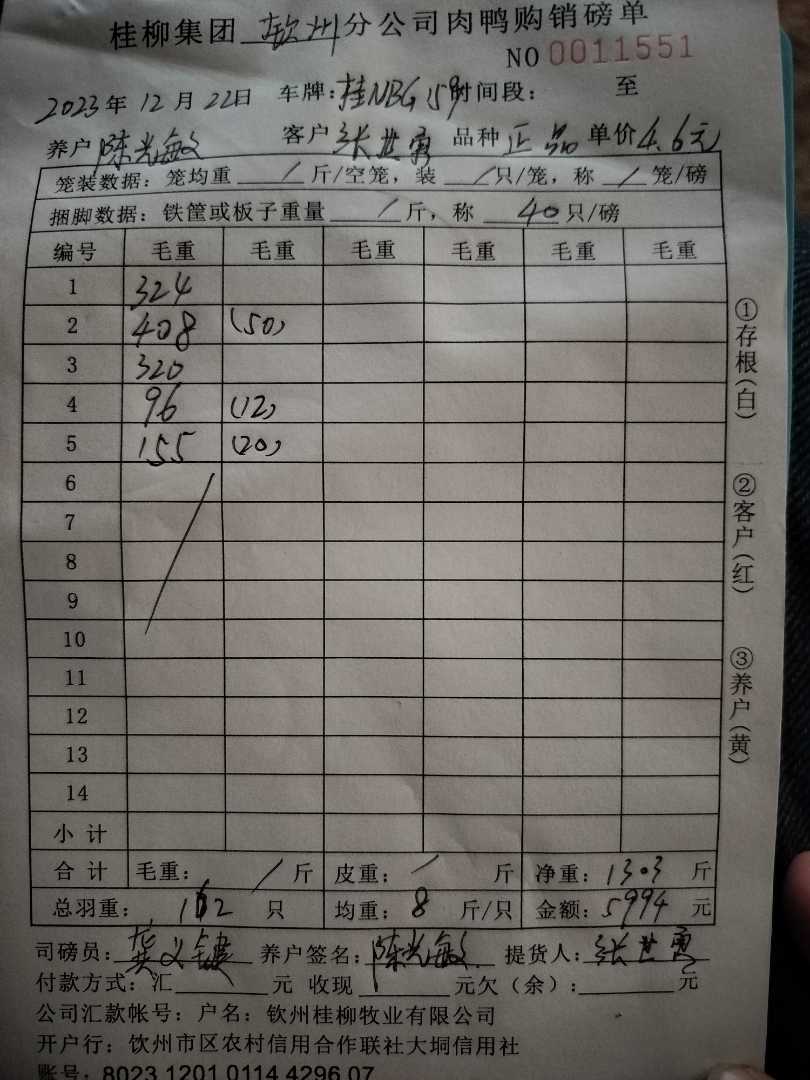 桂柳集团 钦州 分公司肉鸭购销磅单
NO 0011551
2023年12月22日 车牌:桂NBG159 时间段: 至
养户 陈光敏 客户 张世勇 品种 正品 单价 4.6元
笼装数据:笼均重 / 斤/空笼,装 / 只/笼,称 / 笼/磅
捆脚数据:铁筐或板子重量 / 斤,称 40 只/磅
编号 毛重 毛重 毛重 毛重 毛重 毛重
1 324
2 408 (50)
3 320
4 96 (12)
5 155 (20)
6
7
8
9
10
11
12
13
14
小计
合计 毛重: / 斤 皮重: / 斤 净重: 1303 斤
总羽重: 162 只 均重: 8 斤/只 金额: 5994 元
司磅员: 龚义键 养户签名: 陈光敏 提货人: 张世勇
付款方式:汇 元 收现 元欠(余): 元
公司汇款帐号:户名:钦州桂柳牧业有限公司
开户行:钦州市区农村信用合作联社大垌信用社
账号:8023 1201 0114 4296 07
①存根(白)
②客户(红)
③养户(黄)